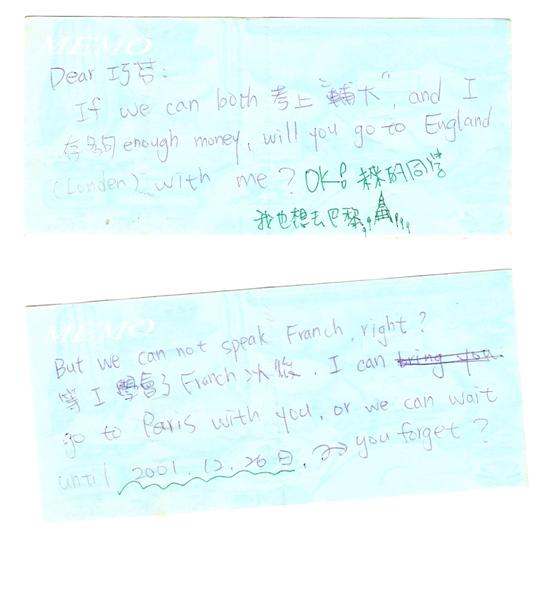 MEMO
Dear 巧苓:
If we can both 考上 "輔大", and I
存夠 enough money, will you go to England
(Londen) with me? OK! 未來的同學
我也想去巴黎
MEMO
But we can not speak Franch, right?
等 I 學會了 Franch 以後, I can bring you.
go to Paris with you, or we can wait
until 2001.12.26日, you forget?